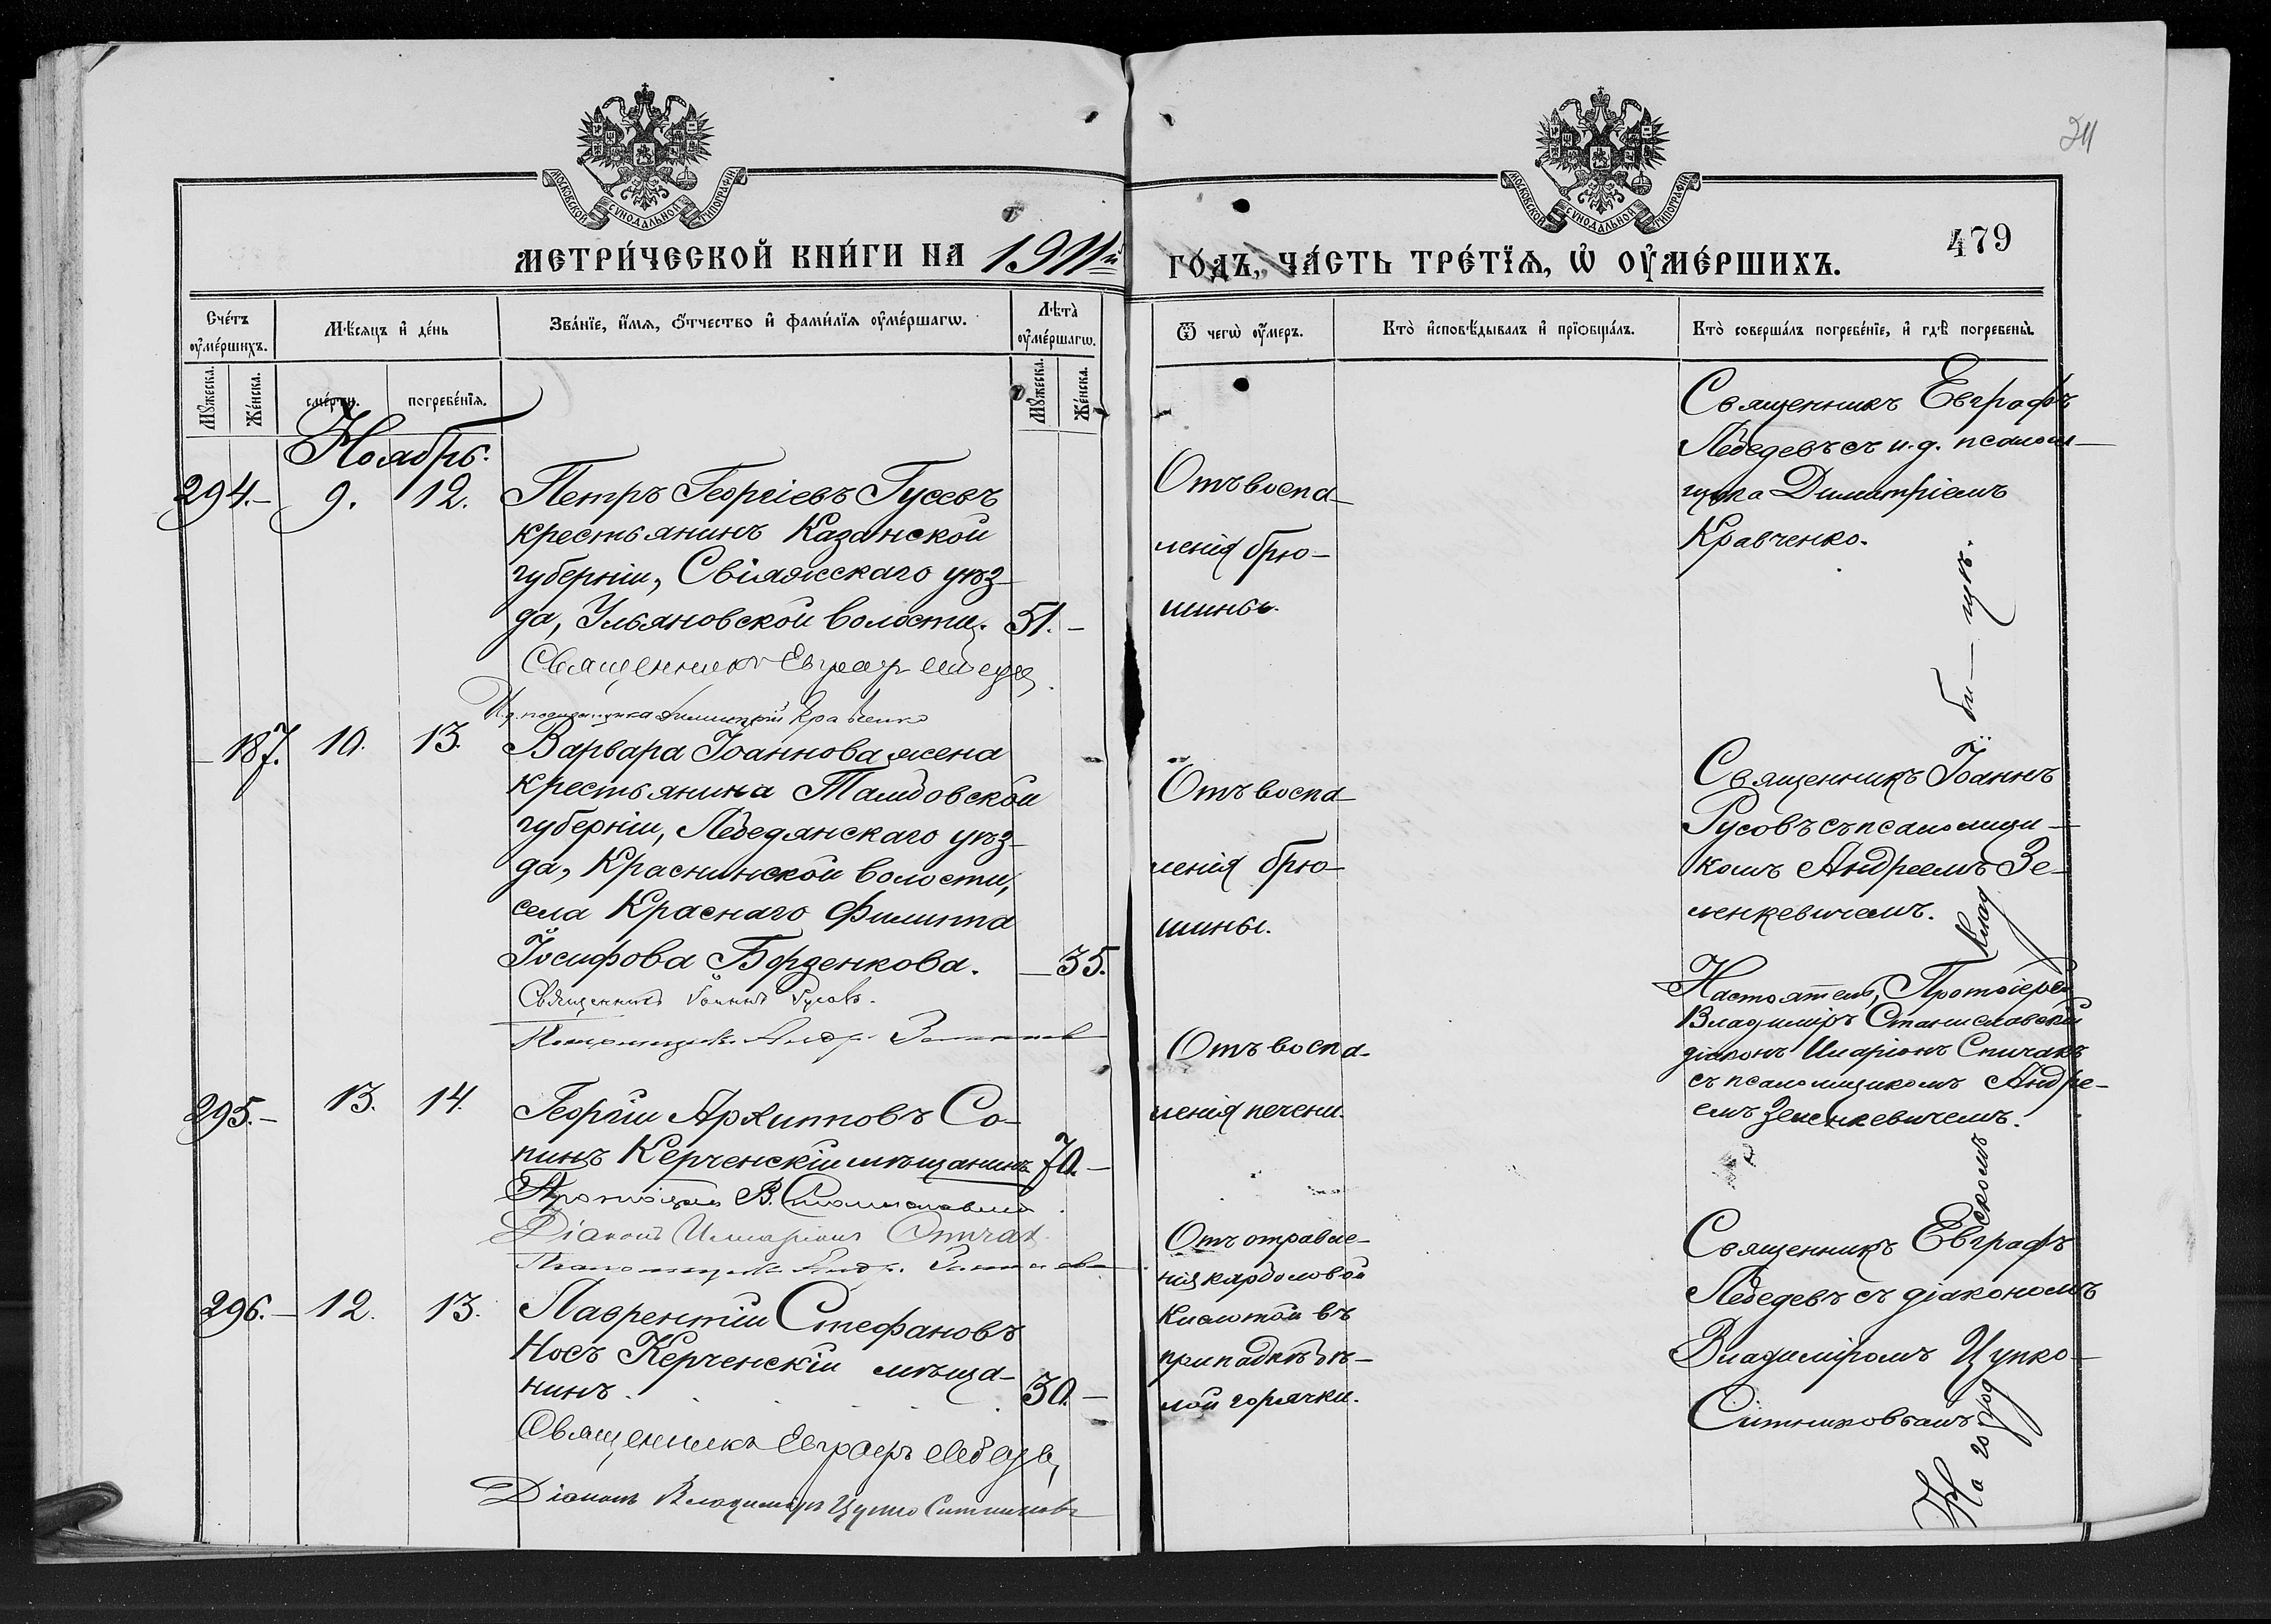 МОСКОВСКОЙ СѴНОДАЛЬНОЙ ТИПОГРАФІИ
МОСКОВСКОЙ СѴНОДАЛЬНОЙ ТИПОГРАФІИ
МЕТРИ́ЧЕСКОЙ КНИ́ГИ НА 1911й
ГО́ДЪ, ЧА́СТЬ ТРЕ́ТЇѦ, Ѡ҆ ОУ҆МЕ́РШИХЪ.
479
Сче́тъ оу҆ме́ршихъ.
Мѣ́сяцъ и҆ де́нь
Зва́нїе, и҆́мѧ, ѻ҆́тчество и҆ фами́лїѧ оу҆ме́ршагѡ.
Лѣ́та оу҆ме́ршагѡ.
Мꙋ́жеска.
Же́нска.
сме́рти.
погребе́нїѧ.
Мꙋ́жеска.
Же́нска.
Ѿ чегѡ̀ оу҆́меръ.
Кто̀ и҆сповѣ́дывалъ и҆ прїѡбща́лъ.
Кто̀ соверша́лъ погребе́нїе, и҆ гдѣ̀ погребены̀.
Ноябрь.
294.– 9. 12. Петръ Георгіевъ Гусевъ
крестьянинъ Казанской
губерніи, Свіяжскаго уѣз-
да, Ульяновской волости. 51.–
Священникъ Евграфъ Лебедев
И.д. псаломщика Димитрій Кравченко
Отъ воспа-
ленія брю-
шины.
Священникъ Евграфъ
Лебедевъ съ и.д. псалом-
щика Димитріемъ
Кравченко.
– 187. 10. 13. Варвара Іоаннова жена
крестьянина Тамбовской
губерніи, Лебедянскаго уѣз-
да, Краснинской волости,
села Краснаго Филиппа
Іосифова Борденкова. – 35.
Священникъ Іоаннъ Русовъ.
Псаломщикъ Андр.
Отъ воспа-
ленія брю-
шины.
Священникъ Іоаннъ
Русовъ съ псаломщи-
комъ Андреемъ Зе-
ленкевичемъ.
295.– 13. 14. Георгій Архиповъ Со-
пинъ Керченскій мѣщанинъ 70.–
Протоіерей В. Станиславскій
Діаконъ Иларіонъ Спичак
Псаломщикъ Андр.
Отъ воспа-
ленія печени.
Настоятель, Протоіерей
Владиміръ Станиславскій
діаконъ Иларіонъ Спичакъ
съ псаломщикомъ Андре-
емъ Зеленкевичемъ.
296.– 12. 13. Лаврентій Стефановъ
Носъ Керченскій мѣща-
нинъ. 30.–
Священникъ Евграфъ Лебедев
Діаконъ Владиміръ Цупко Ситниковъ
Отъ отравле-
нія карболовой
кислотой въ
припадкѣ бѣ-
лой горячки.
Священникъ Евграфъ
Лебедевъ съ діакономъ
Владиміромъ Цупко-
Ситниковымъ
На городскомъ кладби-щѣ.